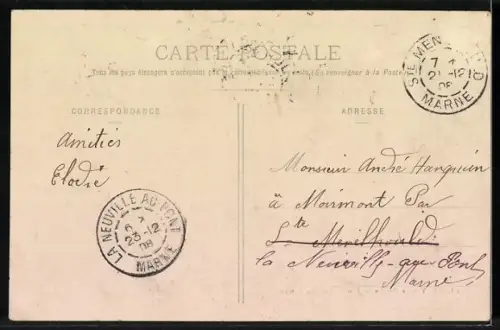 CARTE POSTALE
Tous les pays étrangers n'acceptent pas la correspondance au recto. (Se renseigner à la Poste)
CORRESPONDANCE
ADRESSE
Amitiés
Elodie
Monsieur André
à Moirmont Par
Ste Menehould
la Neuville-au-Pont
Marne
STE MENEHOULD
7
21-12
08
MARNE
LA NEUVILLE AU PONT
7
23-12
08
MARNE